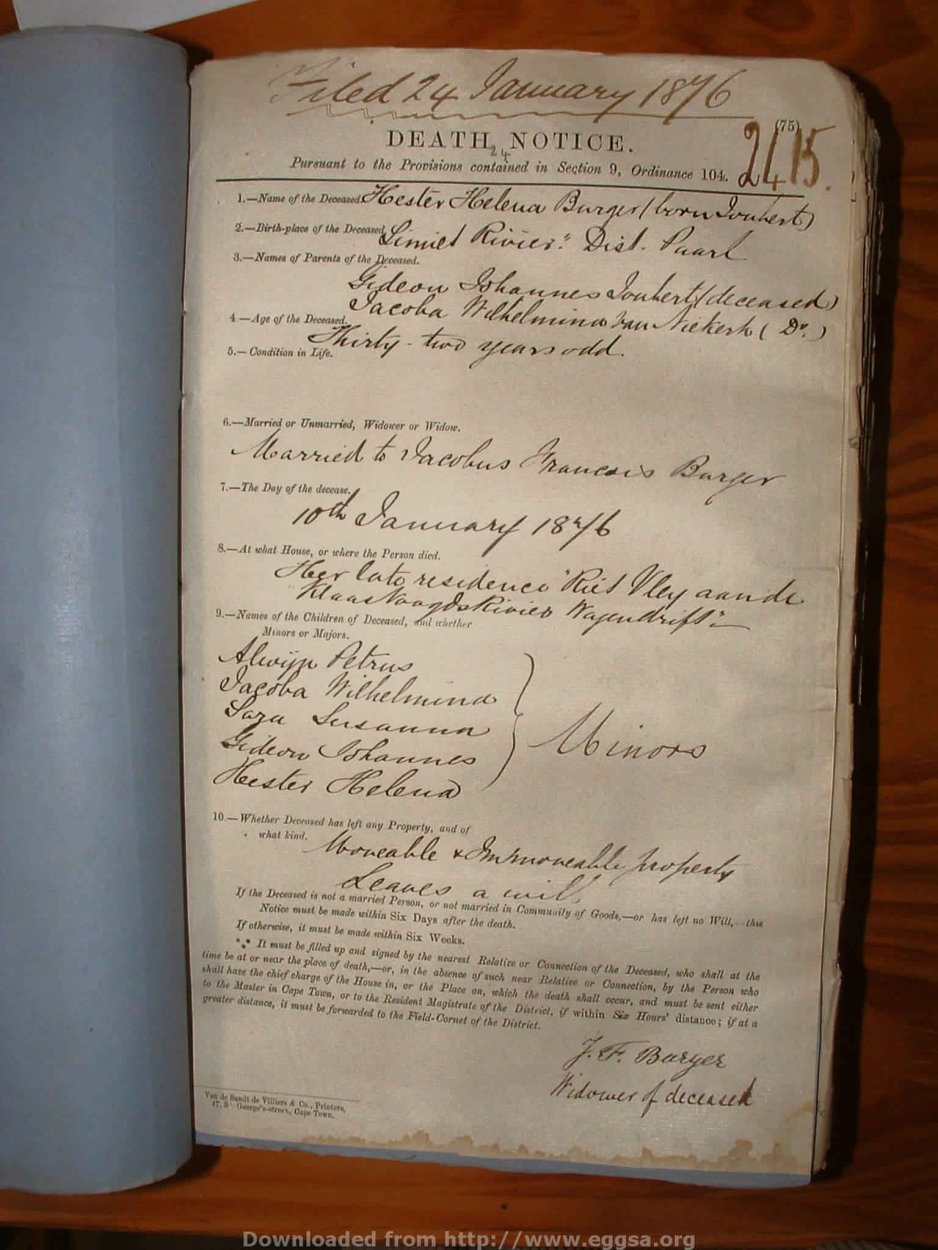 Filed 24 January 1876
(75)
DEATH NOTICE.
2415.
24
Pursuant to the Provisions contained in Section 9, Ordinance 104.
1.—Name of the Deceased Hester Helena Burger (born Joubert)
2.—Birth-place of the Deceased Limiet Rivier." Dist. Paarl
3.—Names of Parents of the Deceased.
Gideon Johannes Joubert (deceased)
Jacoba Wilhelmina van Niekerk ( Do. )
4.—Age of the Deceased.
Thirty-two years odd.
5.—Condition in Life.
6.—Married or Unmarried, Widower or Widow.
Married to Jacobus Francois Burger
7.—The Day of the decease.
10th January 1876
8.—At what House, or where the Person died.
Her late residence "Riet Vley aan de
Klaas Voogds Rivier Wagendrift"
9.—Names of the Children of Deceased, and whether
Minors or Majors.
Alwijn Petrus
Jacoba Wilhelmina
Sara Susanna
Gideon Johannes
Hester Helena
Minors
10.—Whether Deceased has left any Property, and of
what kind.
Moveable & Immoveable property
Leaves a will
If the Deceased is not a married Person, or not married in Community of Goods,—or has left no Will,—this
Notice must be made within Six Days after the death.
If otherwise, it must be made within Six Weeks.
It must be filled up and signed by the nearest Relative or Connection of the Deceased, who shall at the
time be at or near the place of death,—or, in the absence of such near Relative or Connection, by the Person who
shall have the chief charge of the House in, or the Place on, which the death shall occur, and must be sent either
to the Master in Cape Town, or to the Resident Magistrate of the District, if within Six Hours' distance; if at a
greater distance, it must be forwarded to the Field-Cornet of the District.
J. F. Burger
Widower of deceased
Van de Sandt de Villiers & Co., Printers,
47, St. George's-street, Cape Town.
Downloaded from http://www.eggsa.org